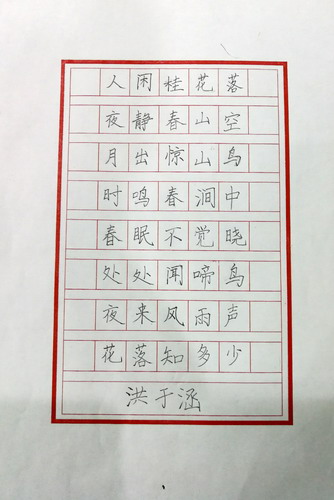 人闲桂花落
夜静春山空
月出惊山鸟
时鸣春涧中
春眠不觉晓
处处闻啼鸟
夜来风雨声
花落知多少
洪于涵